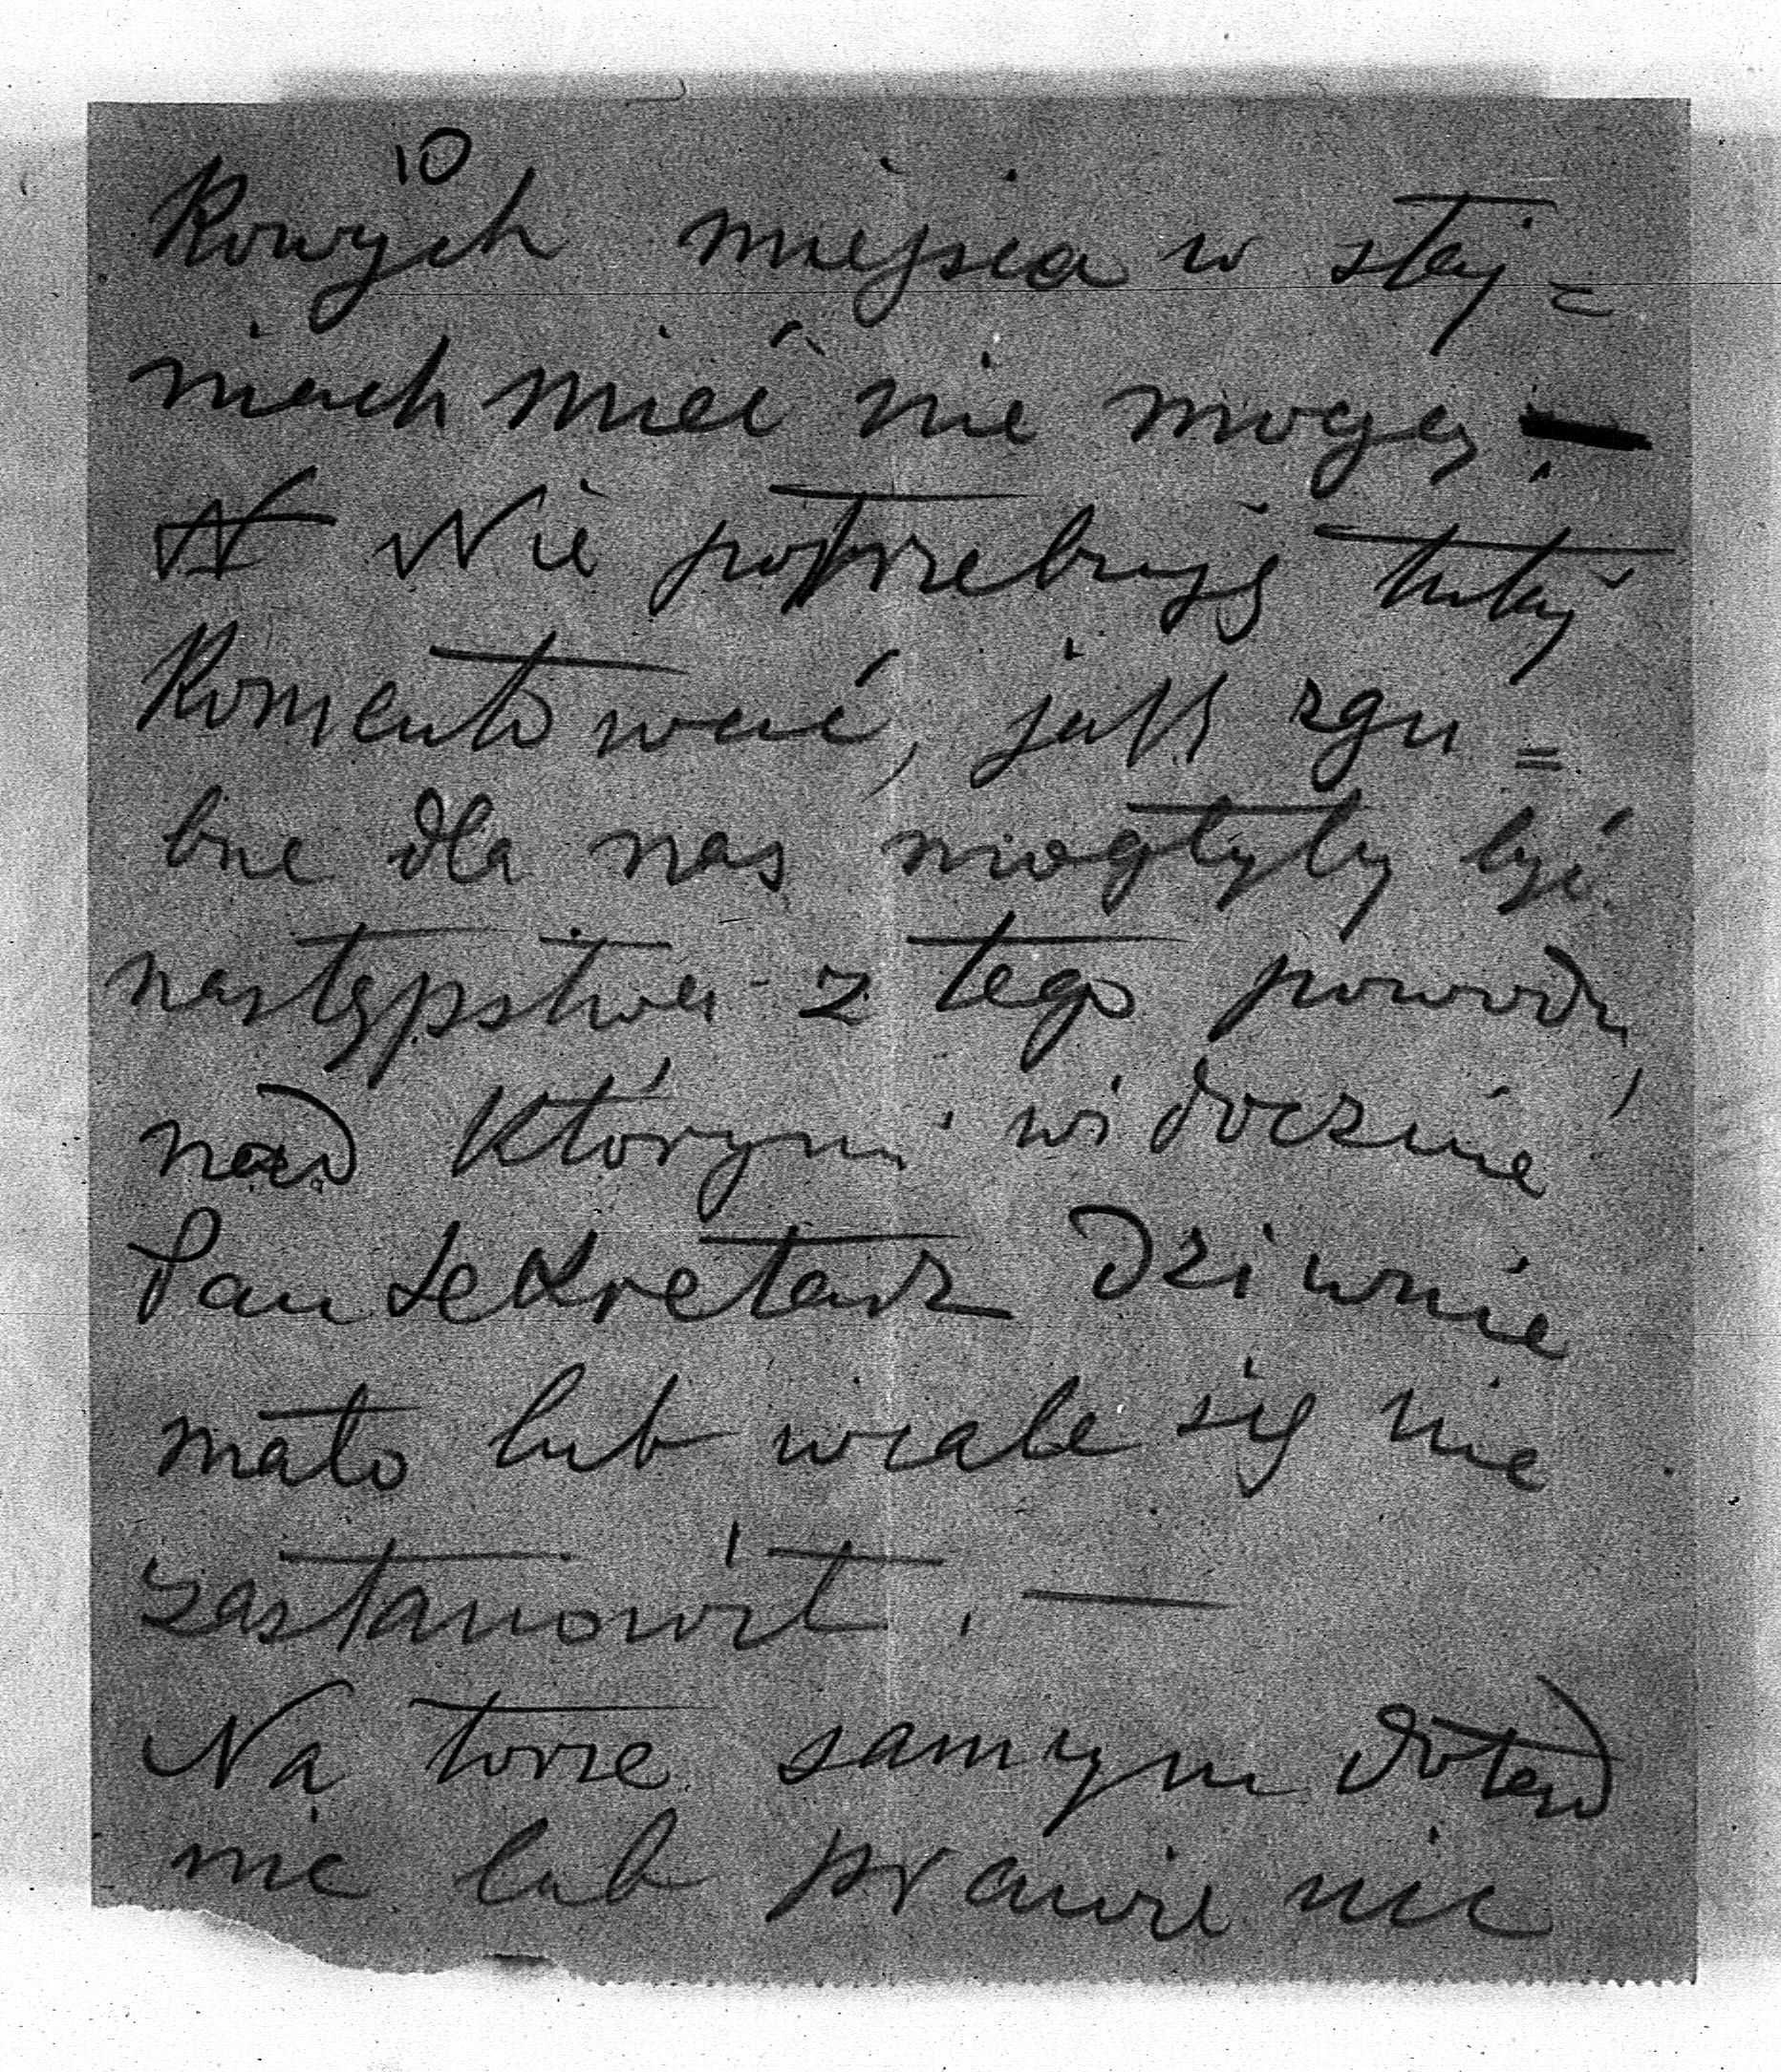 10
kowych miejsca w staj=
niach mieć nie mogą. —
N Nie potrzebuję tutaj
komentować, jakk zgu=
bne dla nas mogłyby być
następstwa z tego powodu,
nad którymi widocznie
Pan Sekretarz dziwnie
mało lub wcale się nie
zastanowił. —
Na torze samym dotąd
nic lub prawie nic